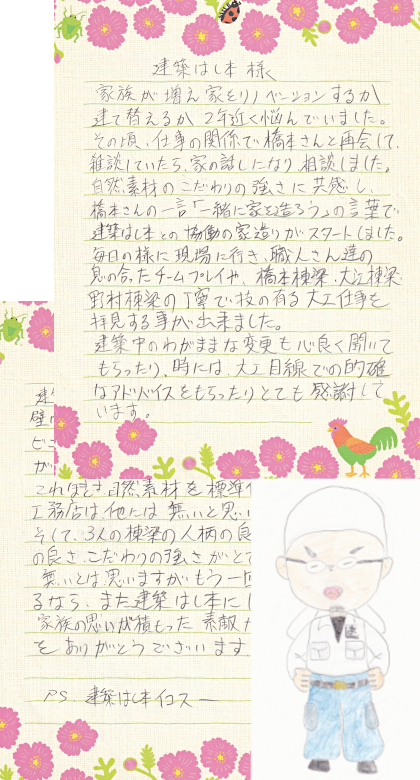 建築はし本 様
家族が増え家をリノベーションするか
建て替えるか 2年近く悩んでいました。
その頃、仕事の関係で橋本さんと再会して、
雑談していたら、家の話しになり、相談しました。
自然素材のこだわりの強さに共感し、
橋本さんの一言「一緒に家を造ろう」の言葉で
建築はし本との協働の家造りがスタートしました。
毎日の様に現場に行き、職人さん達の
息の合ったチームプレイや、橋本棟梁、大江棟梁、
野村棟梁の丁寧で技の有る大工仕事を
拝見する事が出来ました。
建築中のわがままな変更も心良く聞いて
もらったり、時には、大工目線での的確
なアドバイスをもらったりととても感謝して
います。
建
壁
どこ
が
これほどき自然素材を標準
工務店は他には無いと思い
そして、3人の棟梁の人柄の良
の良さ、こだわりの強さがと
無いとは思いますがもう一回
るなら、また建築はし本に
家族の思いが積もった素敵
をありがとうございます
PS. 建築はし本イコスー